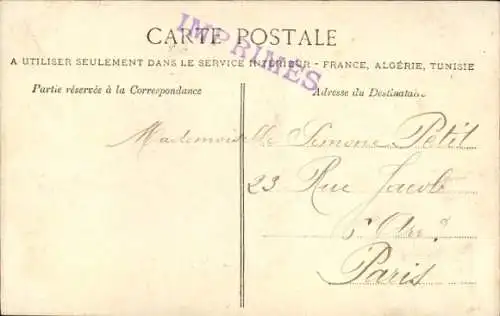 CARTE POSTALE
IMPRIMÉS
A UTILISER SEULEMENT DANS LE SERVICE INTÉRIEUR - FRANCE, ALGÉRIE, TUNISIE
Partie réservée à la Correspondance
Adresse du Destinataire
Mademoiselle Simone Petit
23 Rue Jacob
Paris